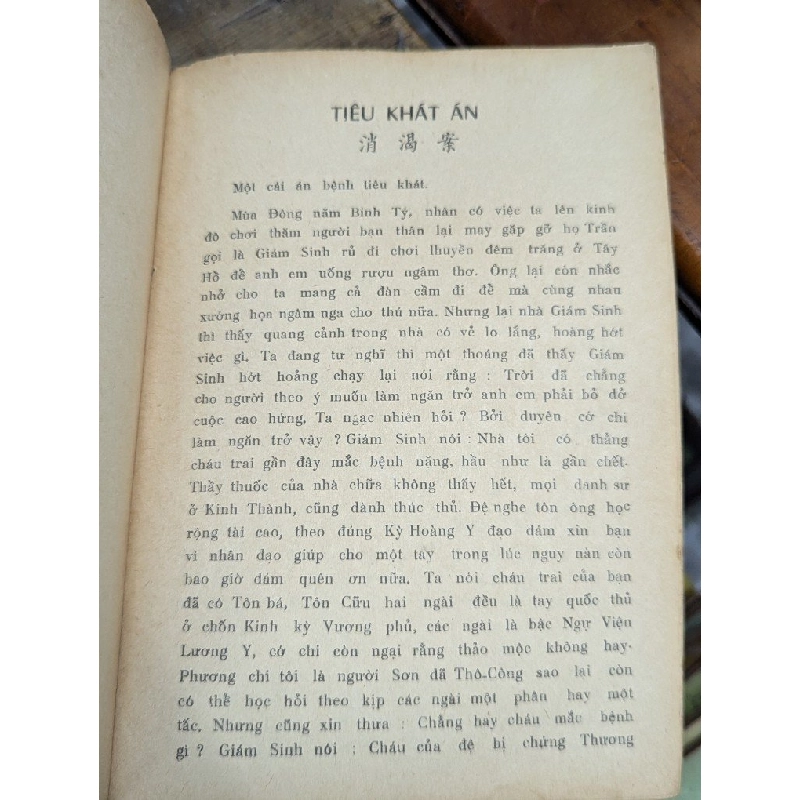 TIÊU KHÁT ÁN
消渴案
Một cái án bệnh tiêu khát.
Mùa Đông năm Bính Tý, nhân có việc ta lên kinh
đô chơi thăm người bạn thân lại may gặp gỡ họ Trần
gọi là Giám Sinh rủ đi chơi thuyền đêm trăng ở Tây
Hồ để anh em uống rượu ngâm thơ. Ông lại còn nhắc
nhở cho ta mang cả đàn cầm đi để mà cùng nhau
xướng họa ngâm nga cho thú nữa. Nhưng lại nhà Giám Sinh
thì thấy quang cảnh trong nhà có vẻ lo lắng, hoàng hớt
việc gì. Ta đang tư nghĩ thì một thoáng đã thấy Giám
Sinh hớt hoảng chạy lại nói rằng : Trời đã chẳng
cho người theo ý muốn làm ngăn trở anh em phải bỏ dở
cuộc cao hứng. Ta ngạc nhiên hỏi ? Bởi duyên cớ chi
làm ngăn trở vậy ? Giám Sinh nói : Nhà tôi có thằng
cháu trai gần đây mắc bệnh nặng, hầu như là gần chết.
Thầy thuốc của nhà chữa không thấy hết, mọi danh sư
ở Kinh Thành, cũng dành thúc thủ. Đệ nghe tôn ông học
rộng tài cao, theo đúng Kỳ Hoàng Y đạo dám xin bạn
vì nhân đạo giúp cho một tay trong lúc nguy nàn còn
bao giờ dám quên ơn nữa. Ta nói cháu trai của bạn
đã có Tôn bá, Tôn Cữu hai ngài đều là tay quốc thủ
ở chốn Kinh kỳ Vương phủ, các ngài là bậc Ngự Viện
Lương Y, cớ chi còn ngại rằng thảo mộc không hay.
Phương chi tôi là người Sơn dã Thô-Công sao lại còn
có thể học hỏi theo kịp các ngài một phân hay một
tấc. Nhưng cũng xin thưa : Chẳng hay cháu mắc bệnh
gì ? Giám Sinh nói : Cháu của đệ bị chứng Thương